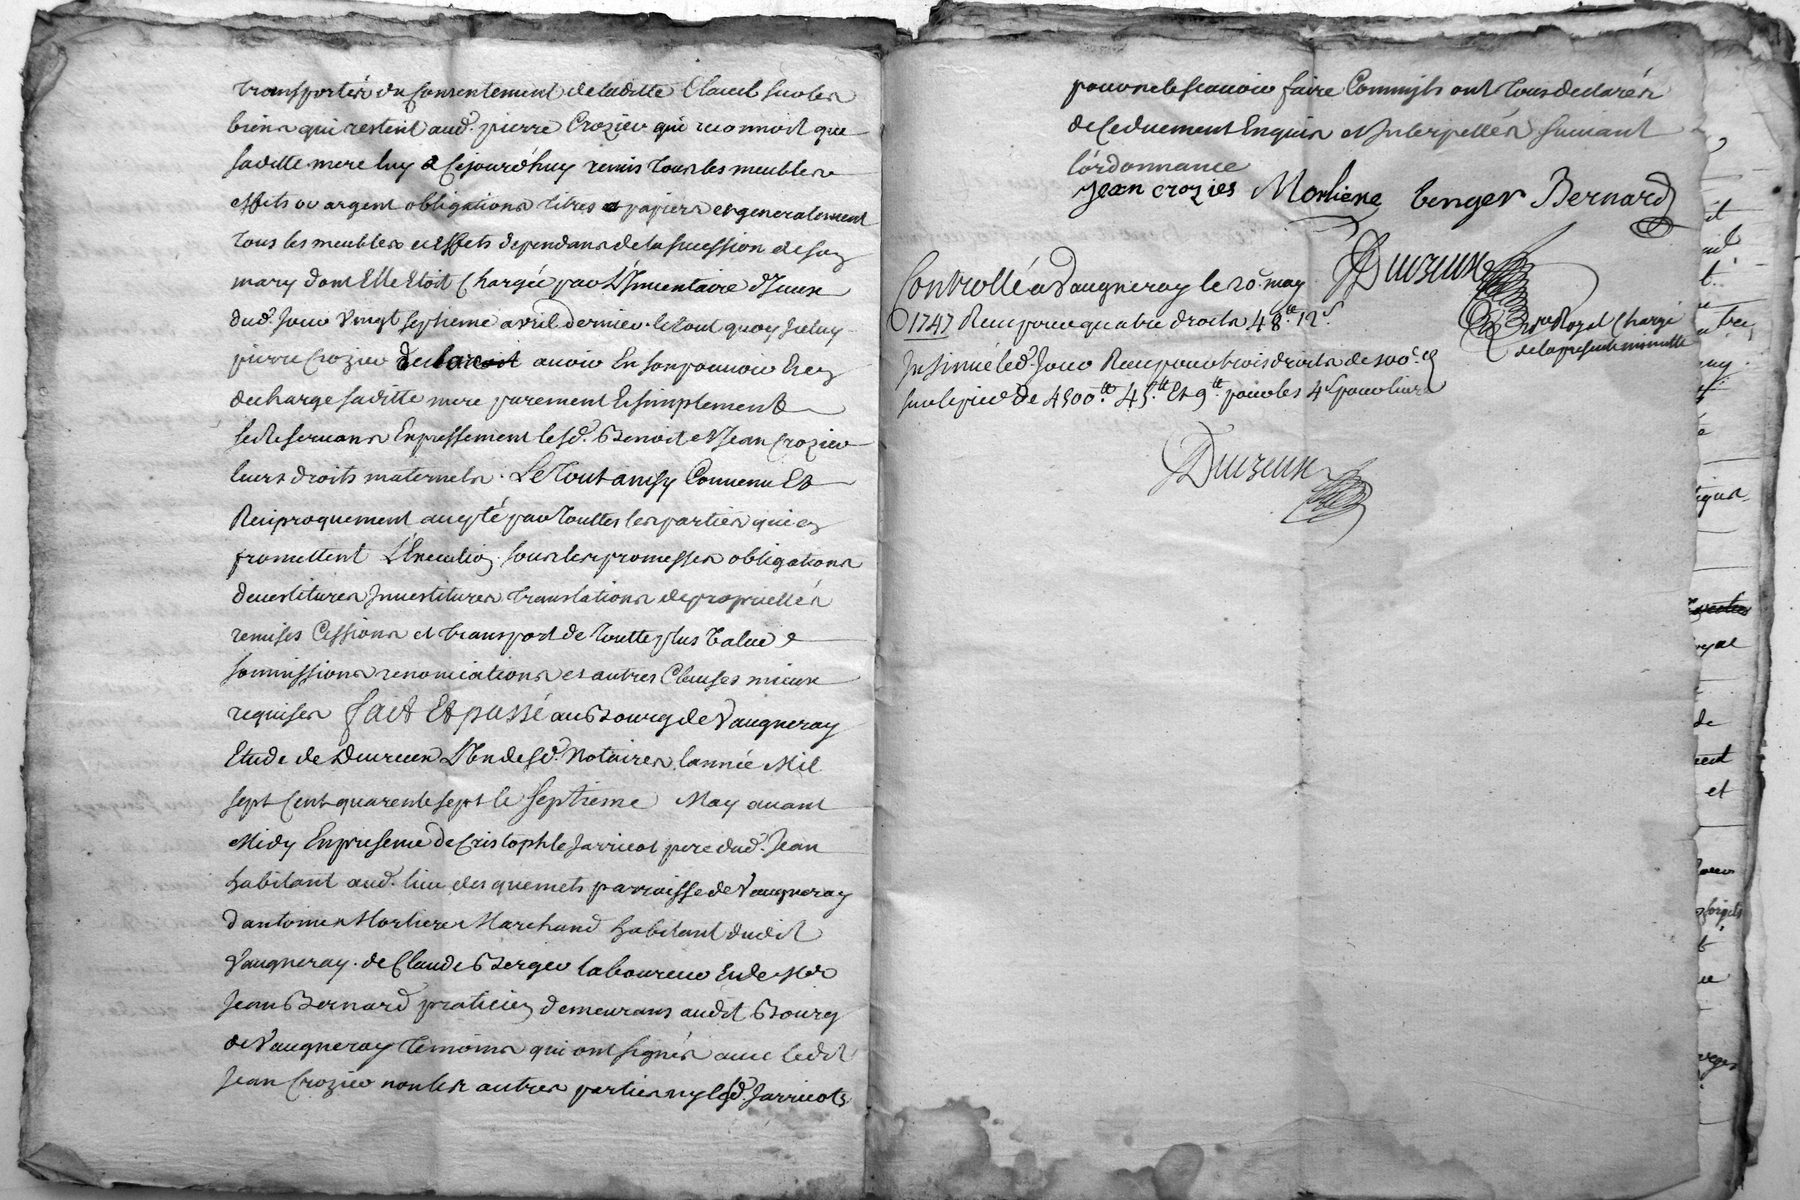 transportés du consentement de laditte Claud sur les
biens qui restent aud. pierre Crozier qui reconnoit que
saditte mere luy a cejourd'huy remis tous les meubles
effets or argent obligations titres et papiers et generalement
tous les meubles et effets dependans de la succession de son
mary dont Elle Etoit Chargée par L'Inventaire d'Iceux
dud. Jour vingt septieme avril dernier. le tout quoy Iceluy
pierre Crozier avoir En son pouvoir En
decharge saditte mere purement Et simplement
se Reservans Expressement lesd. Benoit et Jean Crozier
leurs droits maternels. Le Tout ainsy Convenu Et
Reciproquement accepté par Touttes les parties qui en
promettent L'Execution sous les promesses obligations
devestitures Investitures translations de proprietté
remises Cessions et transport de toutte plus value
sommissions renonciations et autres Clauses mieux
requises fait Et passé au Bourg de Vaugneray
Etude de Duvreux L'Un desd. Notaires, l'année Mil
sept Cent quarente sept le septieme May avant
Midy En presence de Cristophle Jarricot pere dud. Jean
habitant aud. lieu des quemets parroisse de Vaugneray
d'antoine Morliere Marchand habitant dudit
Vaugneray. de Claude Berger laboureur Et de Mr
Jean Bernard praticien demeurans audit Bourg
de Vaugneray temoins qui ont signés avec ledit
Jean Crozier non les autres parties ny lesd. Jarricots
pour ne le scavoir faire Comm'ils ont tous declarés
de ce duement Enquis et Interpellés suivant
l'ordonnance
jean crozies Morliere berger Bernard
Duvreux
Controllé a Vaugneray le 20. may
1747 Receu pour quatre droits 48tt. 12s.
Nre Royal Chargé
de la presente minutte
Insinué led. Jour Receu pour trois droits de 100e d
sur le pied de 4500tt. 45tt Et 9tt pour les 4s pour livre
Duvreux